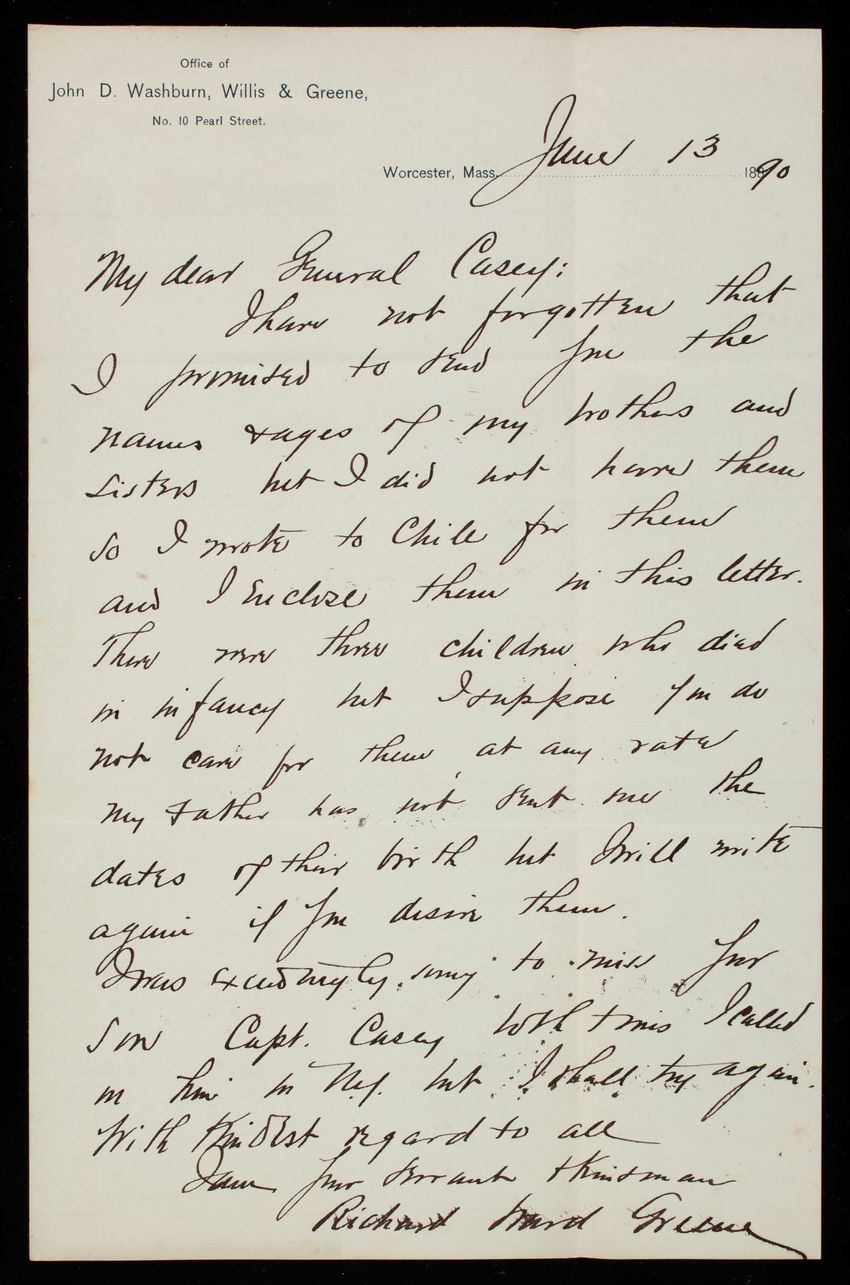 Office of
John D. Washburn, Willis & Greene,
No. 10 Pearl Street.
Worcester, Mass. June 13 1890
My dear General Casey:
I have not forgotten that
I promised to send you the
names & ages of my brothers and
sisters but I did not have them
so I wrote to Chile for them
and I enclose them in this letter.
There were three children who died
in infancy but I suppose you do
not care for them, at any rate
my Father has not sent me the
dates of their birth but I will write
again if you desire them.
I was exceedingly sorry to miss your
son Capt. Casey both times I called
on him in N.Y. but I shall try again.
With kindest regard to all
I am your servant & kinsman
Richard Ward Greene